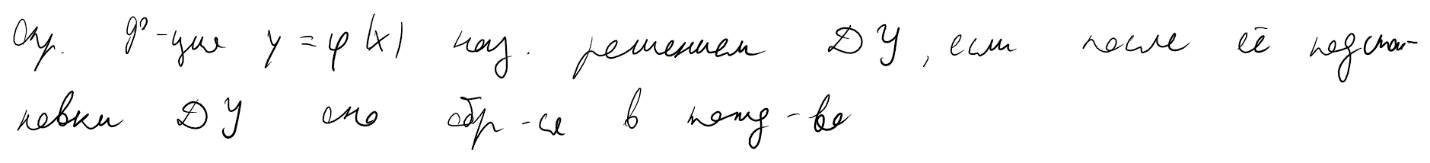 Опр. ф-ция y = φ(x) наз. решением ДУ, если после её подста-
новки ДУ оно обр-ся в тожд-во